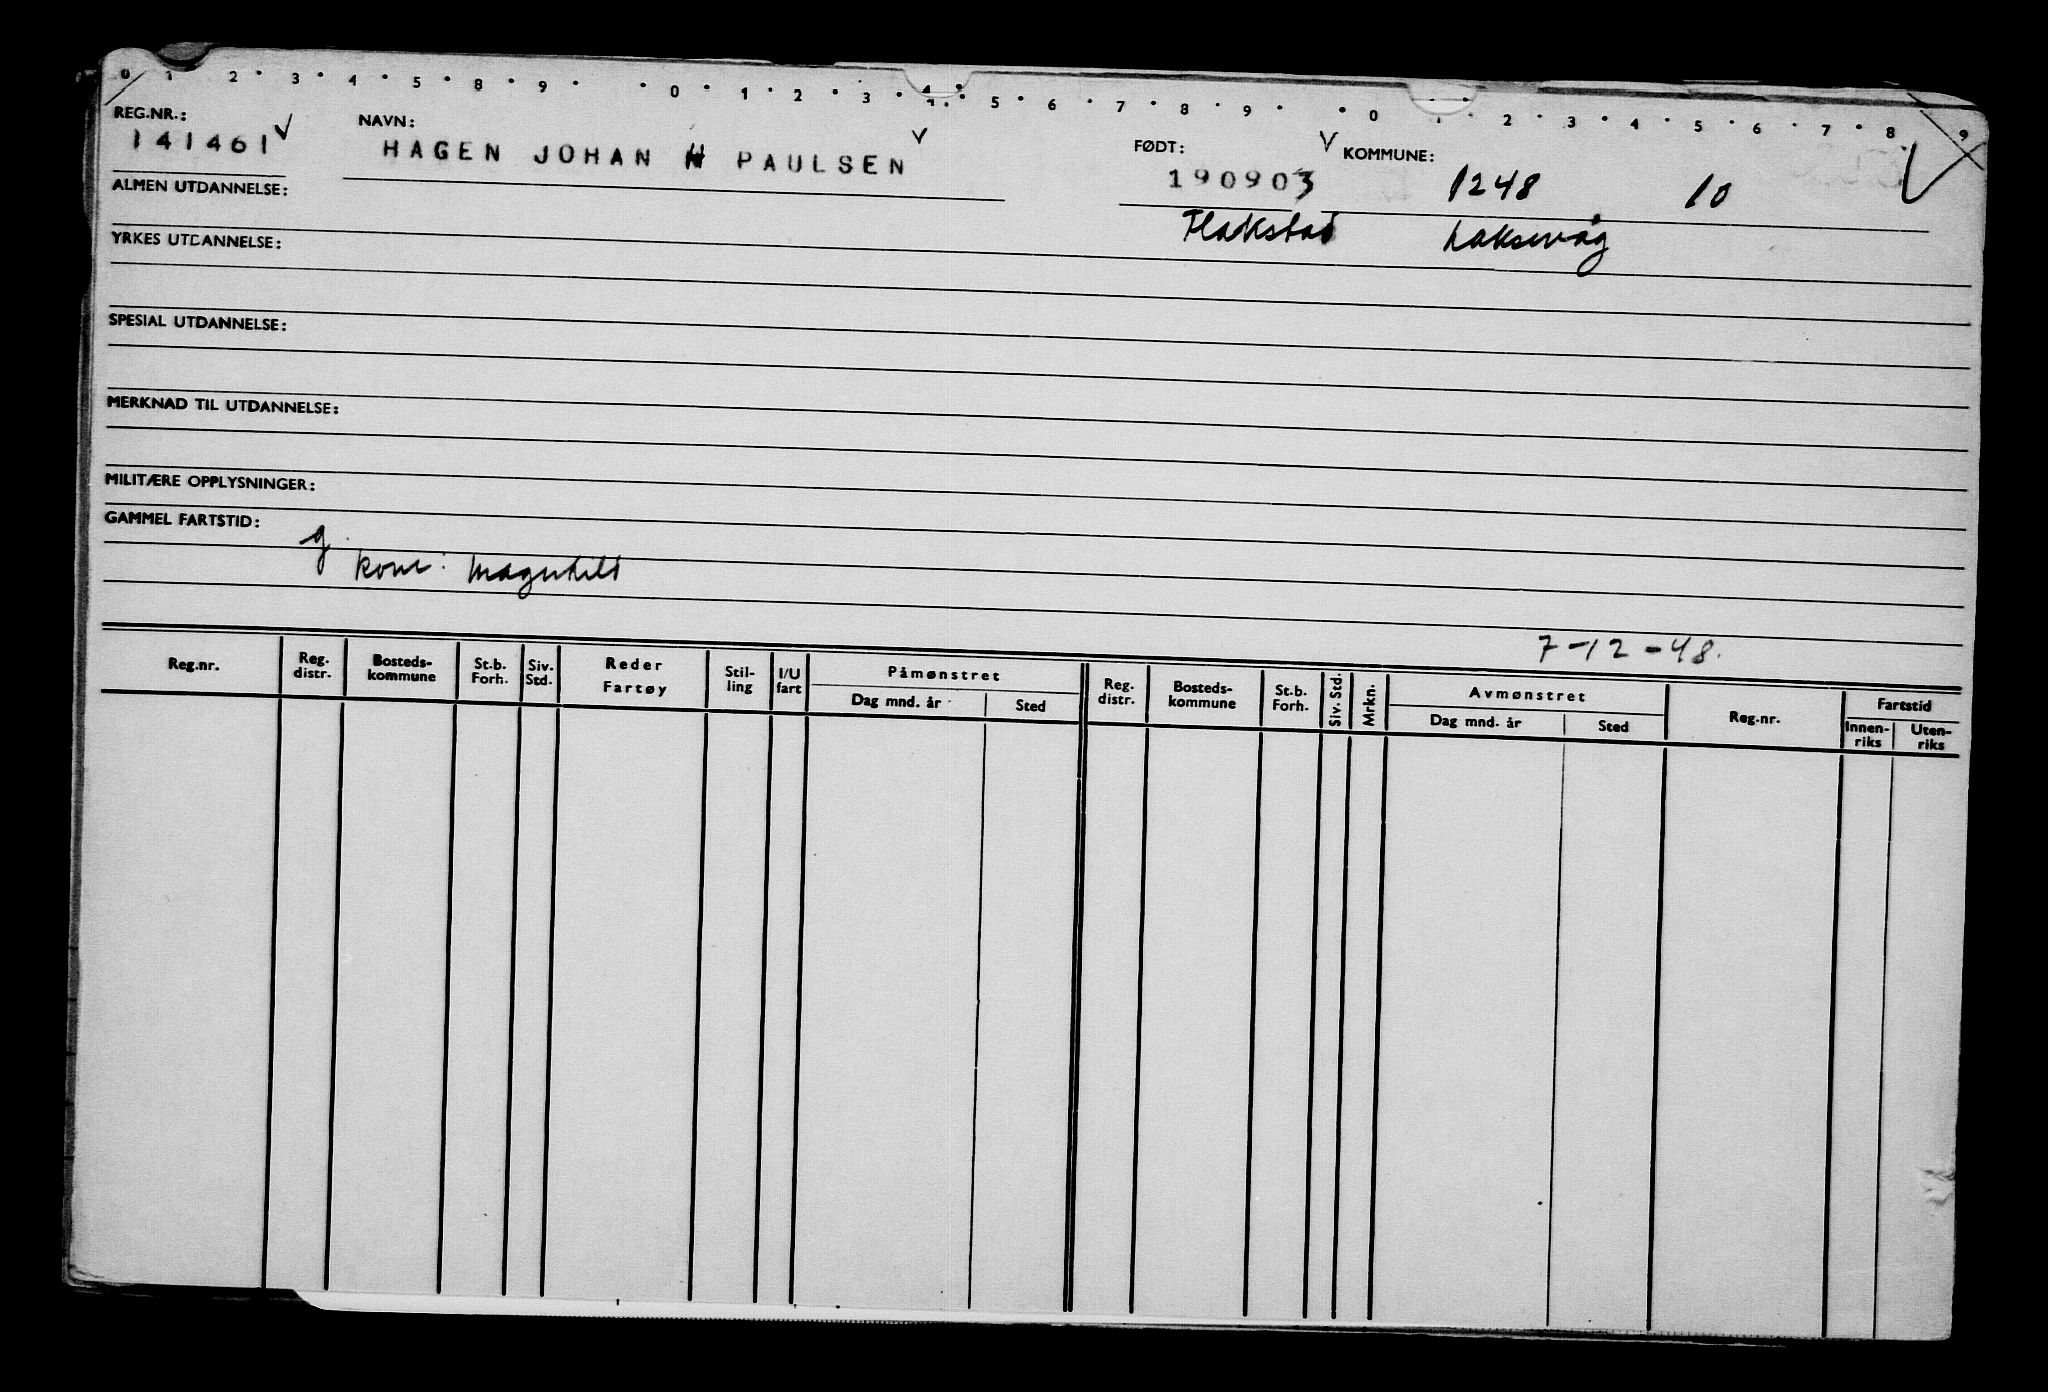 0 1 2 3 4 5 8 9 0 1 2 3 4 5 6 7 8 9 0 1 2 3 4 5 6 7 8 9
REG.NR.: NAVN: FØDT: KOMMUNE:
141461 HAGEN JOHAN H PAULSEN 190903 1248 10
ALMEN UTDANNELSE: Flakstad Laksevåg
YRKES UTDANNELSE:
SPESIAL UTDANNELSE:
MERKNAD TIL UTDANNELSE:
MILITÆRE OPPLYSNINGER:
GAMMEL FARTSTID:
g.
kone: Magnhild
7-12-48.
Reg.nr. Reg. distr. Bosteds-kommune St.b. Forh. Siv. Std. Reder Fartøy Stil-ling I/U fart Påmønstret Dag mnd. år Sted Reg. distr. Bosteds-kommune St.b. Forh. Siv. Std. Mrkn. Avmønstret Dag mnd. år Sted Reg.nr. Fartstid Innen-riks Uten-riks